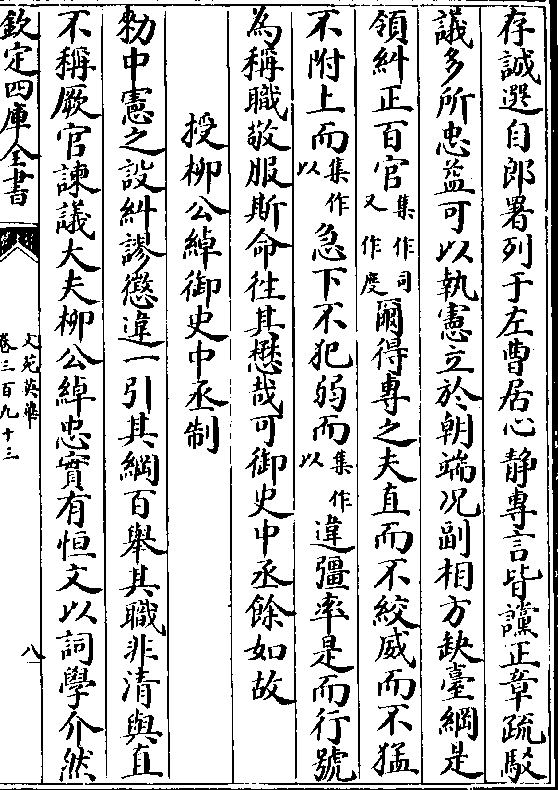 存誠選自郎署列于左曹居心静專言皆讜正章疏駁
議多所忠益可以執憲立於朝端况副相方缺臺綱是
領糾正百官集作司又作度爾得專之夫直而不絞威而不猛
不附上而集作以急下不犯弱而集作以違彊率是而行號
為稱職敬服斯命徃其懋哉可御史中丞餘如故
授柳公綽御史中丞制
勅中憲之設糾謬懲違一引其綱百舉其職非清與直
不稱厥官諫議大夫柳公綽忠實有恒文以詞學介然
欽定四庫全書
文苑英華
卷三百九十三
八